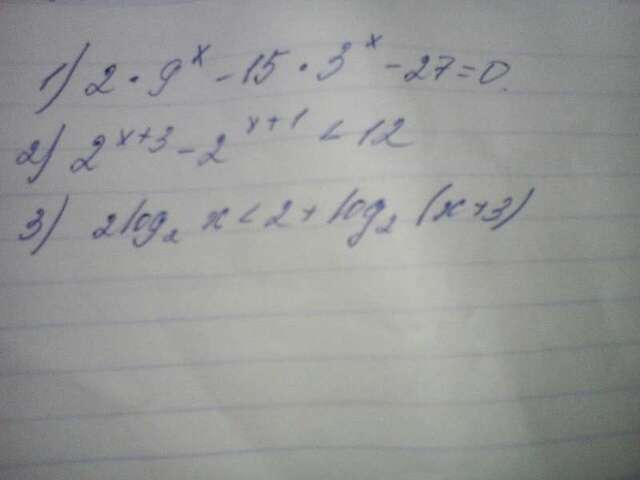 1) 2 · 9^x - 15 · 3^x - 27 = 0.
2) 2^x+3 - 2^x+1 < 12
3) 2 log₂ x < 2 + log₂ (x+3)